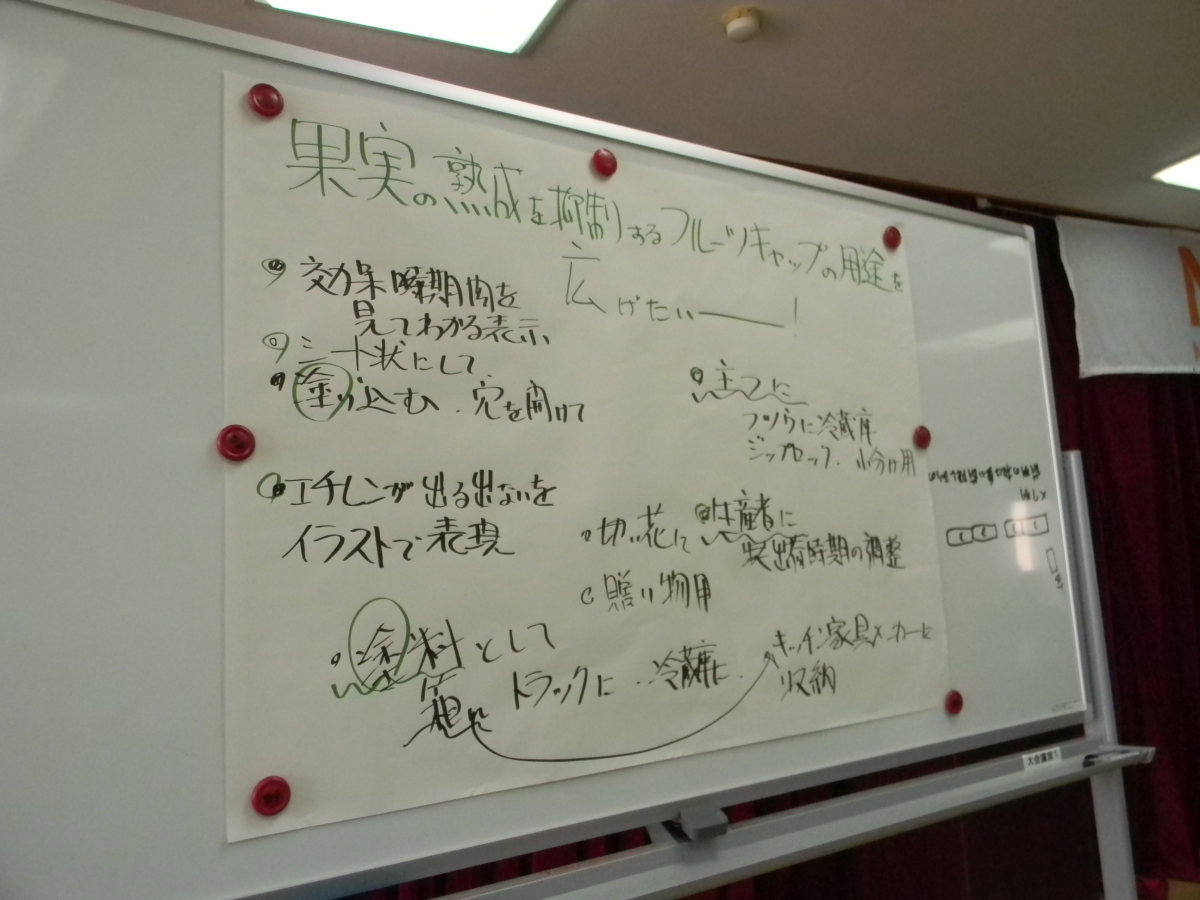 果実の熟成を抑制するフルーツキャップの用途を
広げたいー!
効果期間を
見てわかる表示
シート状にして
塗り込む.穴を開けて
エチレンが出る出ないを
イラストで表現
主フに
フツウに冷蔵庫
ジップロック.小分け用
切り花に
生産者に
出荷時期の調整
贈り物用
塗料として
箱に
トラックに.冷蔵庫に.
キッチン家具メーカーに
収納
大会議室1